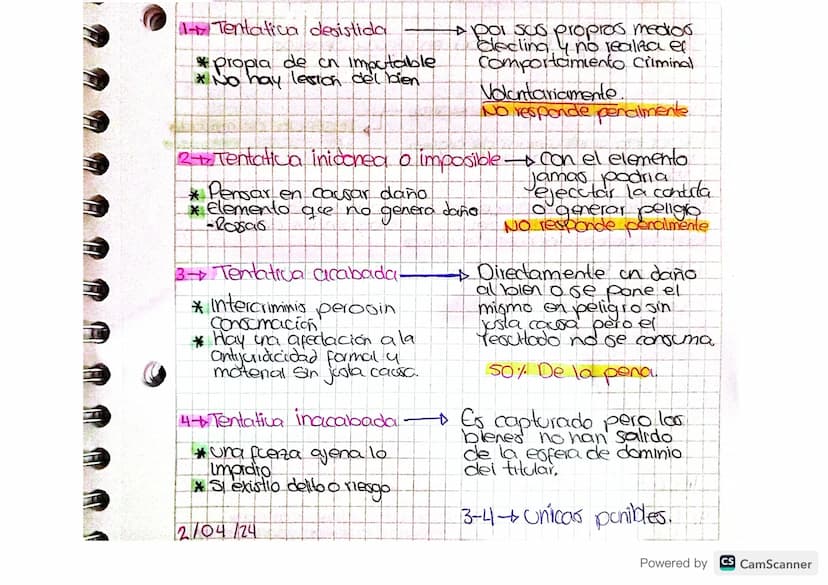 1→ Tentativa desistida → por sus propios medios
declina y no realiza el
comportamiento criminal
* propia de un imputable
* No hay lesion del bien
Voluntariamente.
No responde penalmente
2→ Tentativa inidonea o imposible → con el elemento
jamas podria
ejecutar la condcta
o generar peligro
* Pensar en causar daño
* Elemento que no genera daño
-Rosas
NO responde penalmente
3→ Tentativa acabada → Directamente un daño
al bien o se pone el
mismo en peligro sin
justa causa pero el
resultado no se consuma.
* Intercriminis pero sin
consumación
* Hay una afectación a la
antijuricidad formal y
material sin justa causa.
50% De la pena.
4→ Tentativa inacabada → Es capturado pero los
bienes no han salido
de la esfera de dominio
del titular.
* una fuerza ajena lo
impidio
* Si existio delito o riesgo
3-4 → unicas punibles.
2/04/24
Powered by CS CamScanner